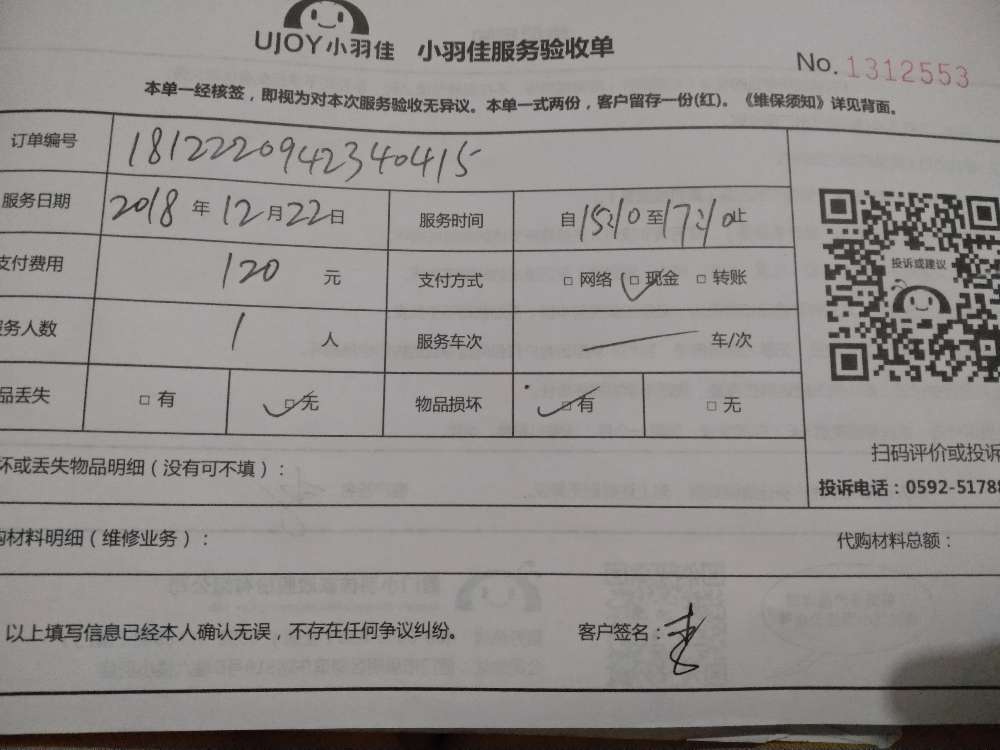 UJOY小羽佳 小羽佳服务验收单
No. 1312553
本单一经核签，即视为对本次服务验收无异议。本单一式两份，客户留存一份(红)。《维保须知》详见背面。
订单编号 1812220942340415
服务日期 2018 年 12 月 22 日 服务时间 自 15:10 至 17:10 止
支付费用 120 元 支付方式 □ 网络 □ 现金 □ 转账
投诉或建议
务人数 1 人 服务车次 车/次
品丢失 □ 有 □ 无 物品损坏 □ 有 □ 无
坏或丢失物品明细（没有可不填）：
扫码评价或投诉
投诉电话：0592-5178
购材料明细（维修业务）： 代购材料总额：
以上填写信息已经本人确认无误，不存在任何争议纠纷。 客户签名：